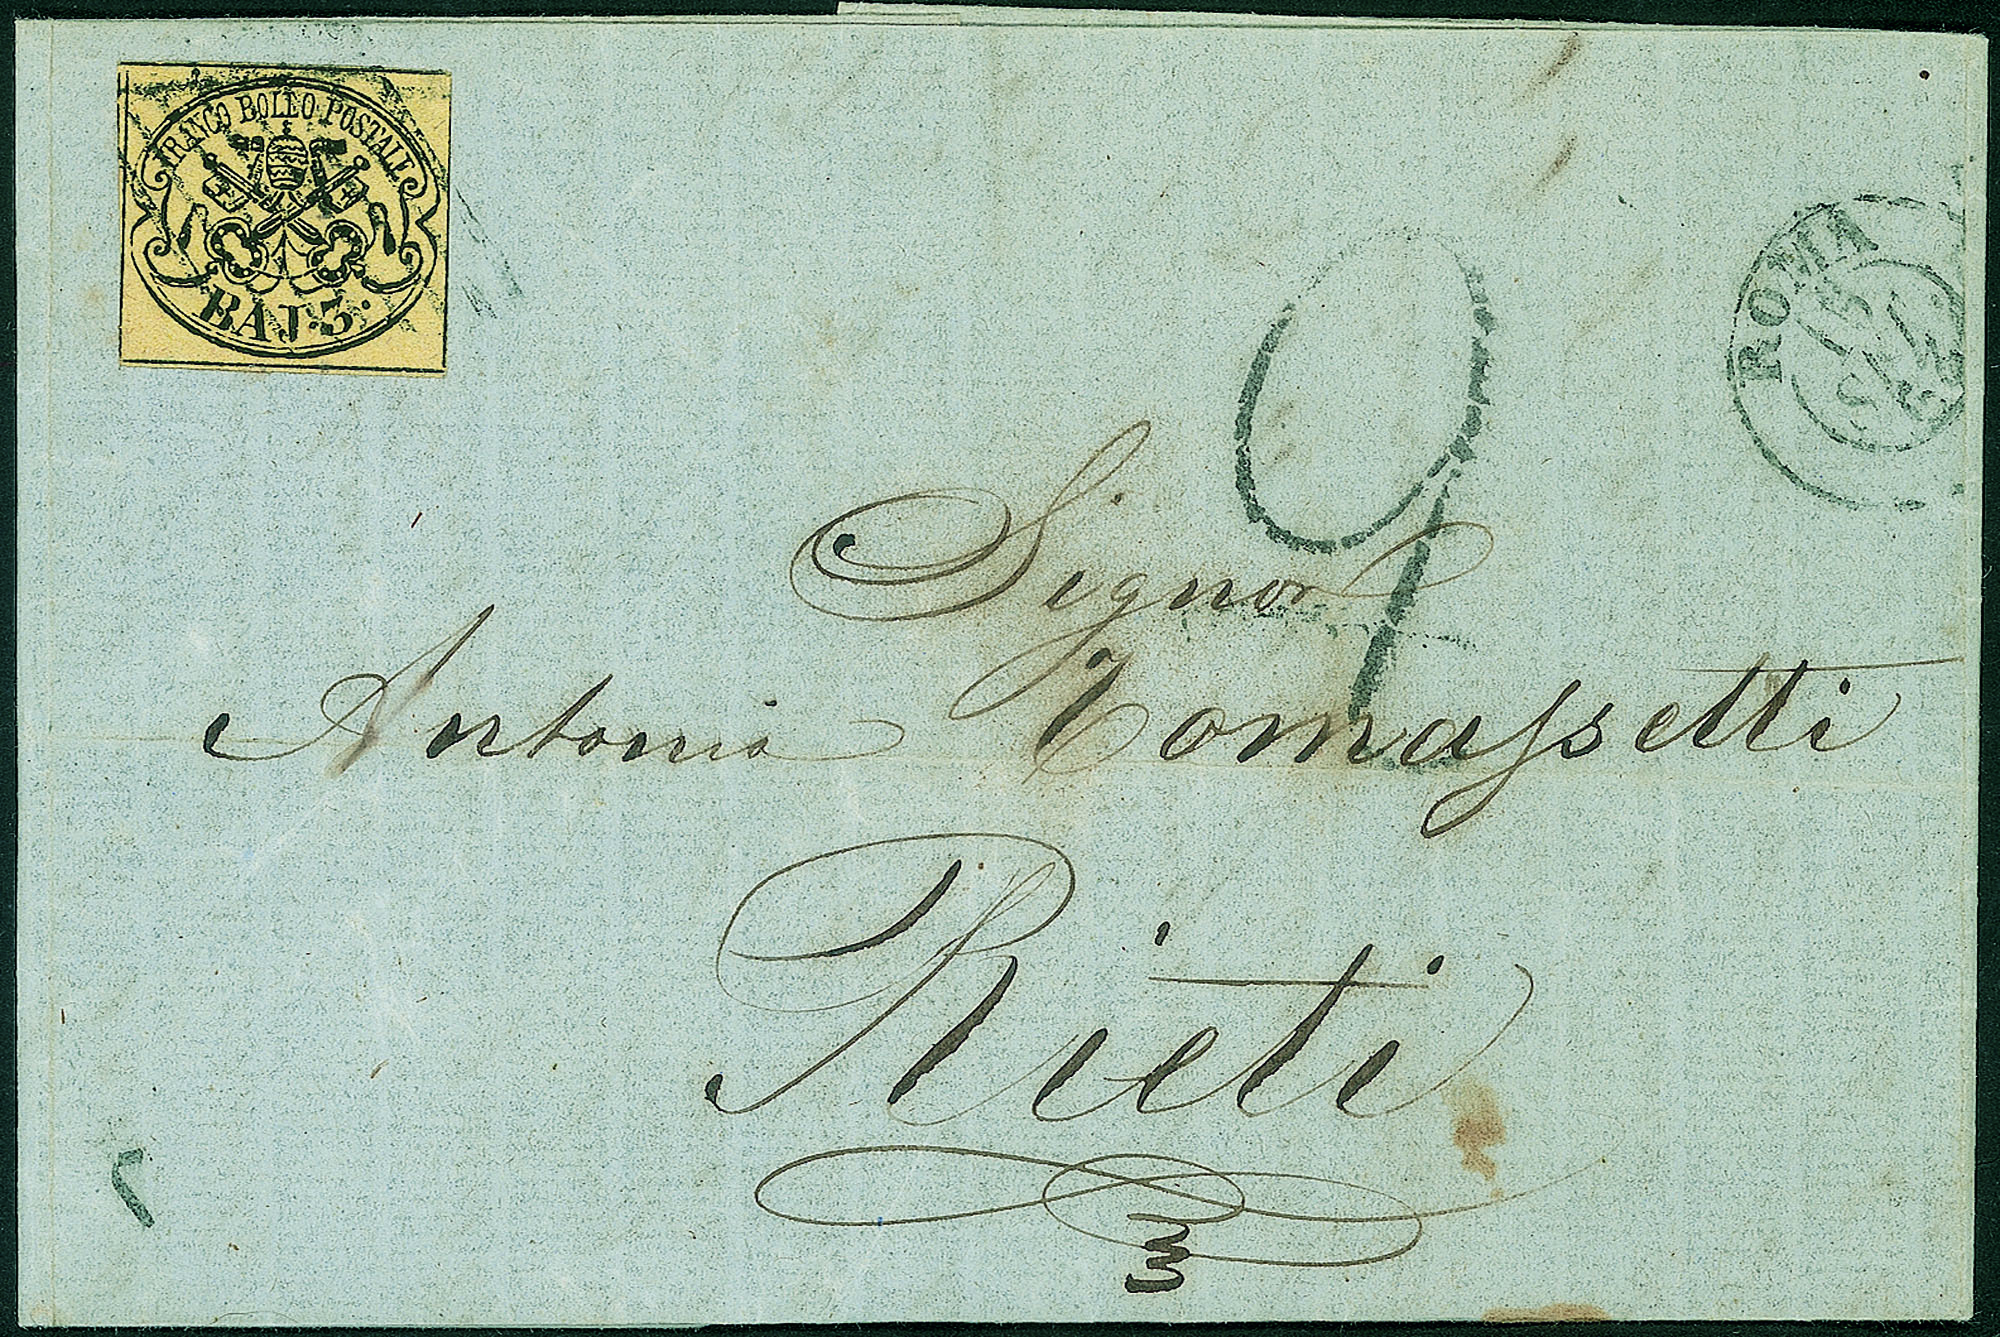 FRANCO BOLLO POSTALE
BAJ: 3.
ROMA
9
Signor
Antonio Tomassetti
Rieti